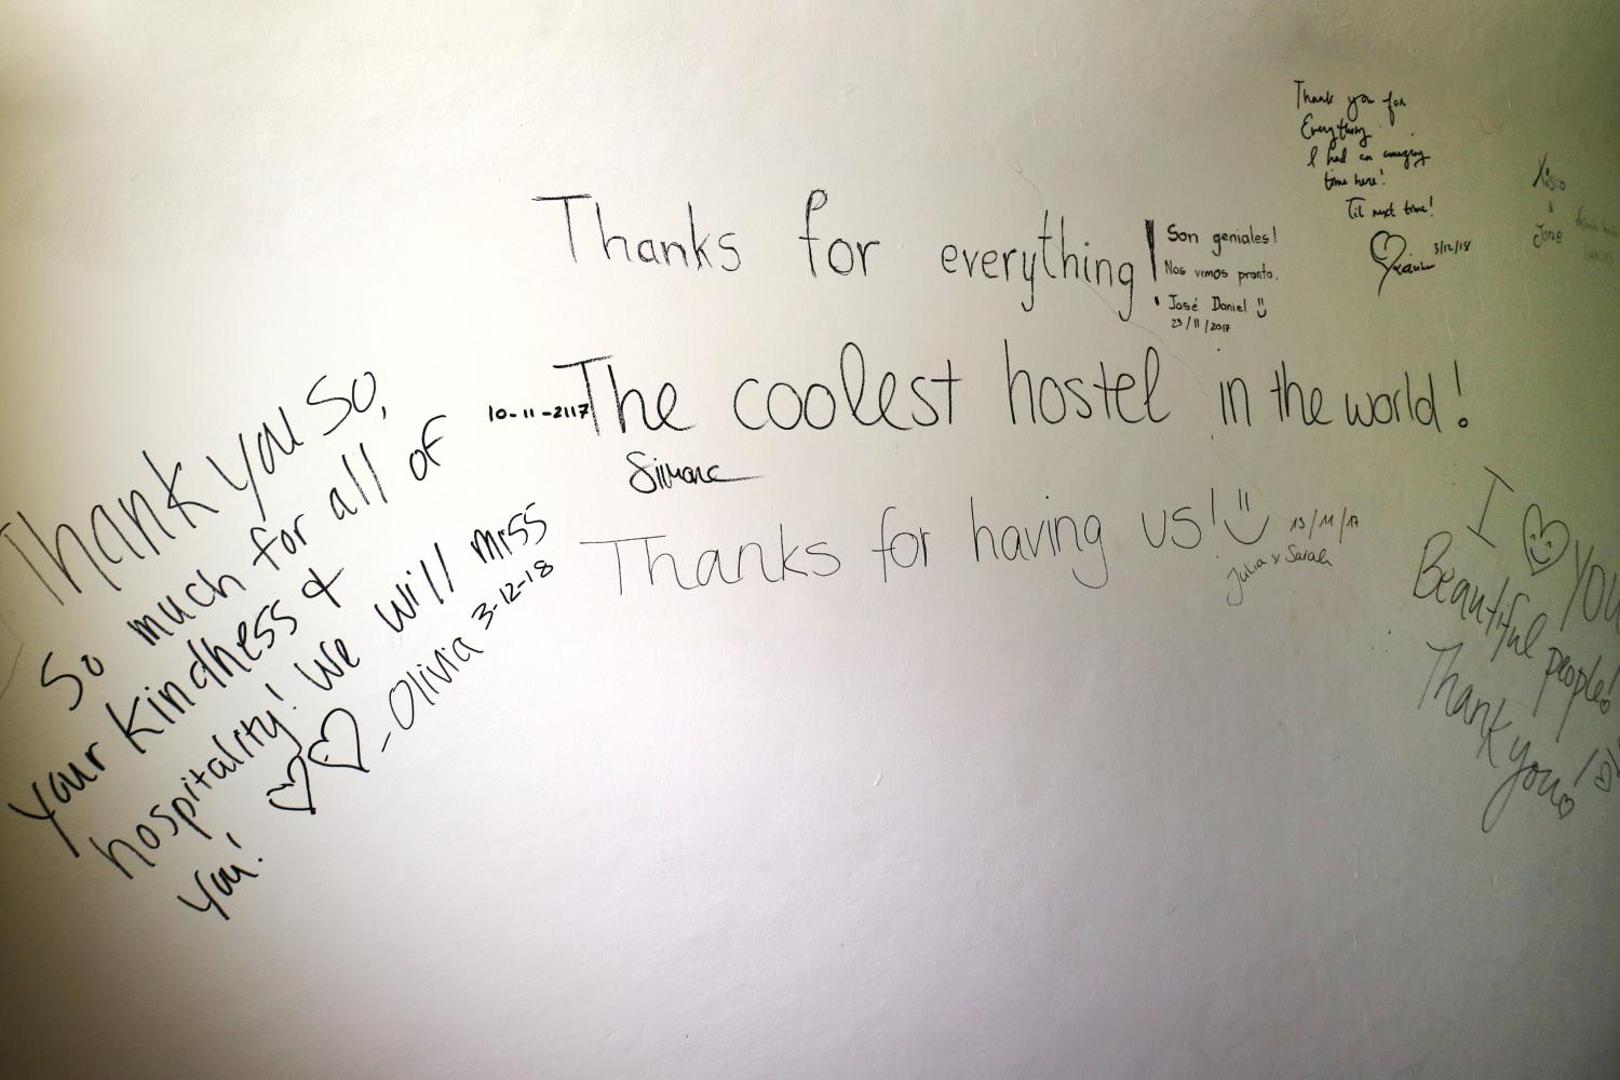 Thank you for
Everything
I had an amazing
time here!
Til next time!
3/12/18
Xisco
Jone
Thanks for everything!
Son geniales!
Nos vemos pronto.
José Daniel
23/11/2017
10-11-2117
The coolest hostel in the world!
Simone
Thanks for having us!
13/11/17
Julia & Sarah
Thank you so,
So much for all of
your kindness &
hospitality! We will miss
you!
- Olivia 3-12-18
I YOU
Beautiful people!
Thank you!